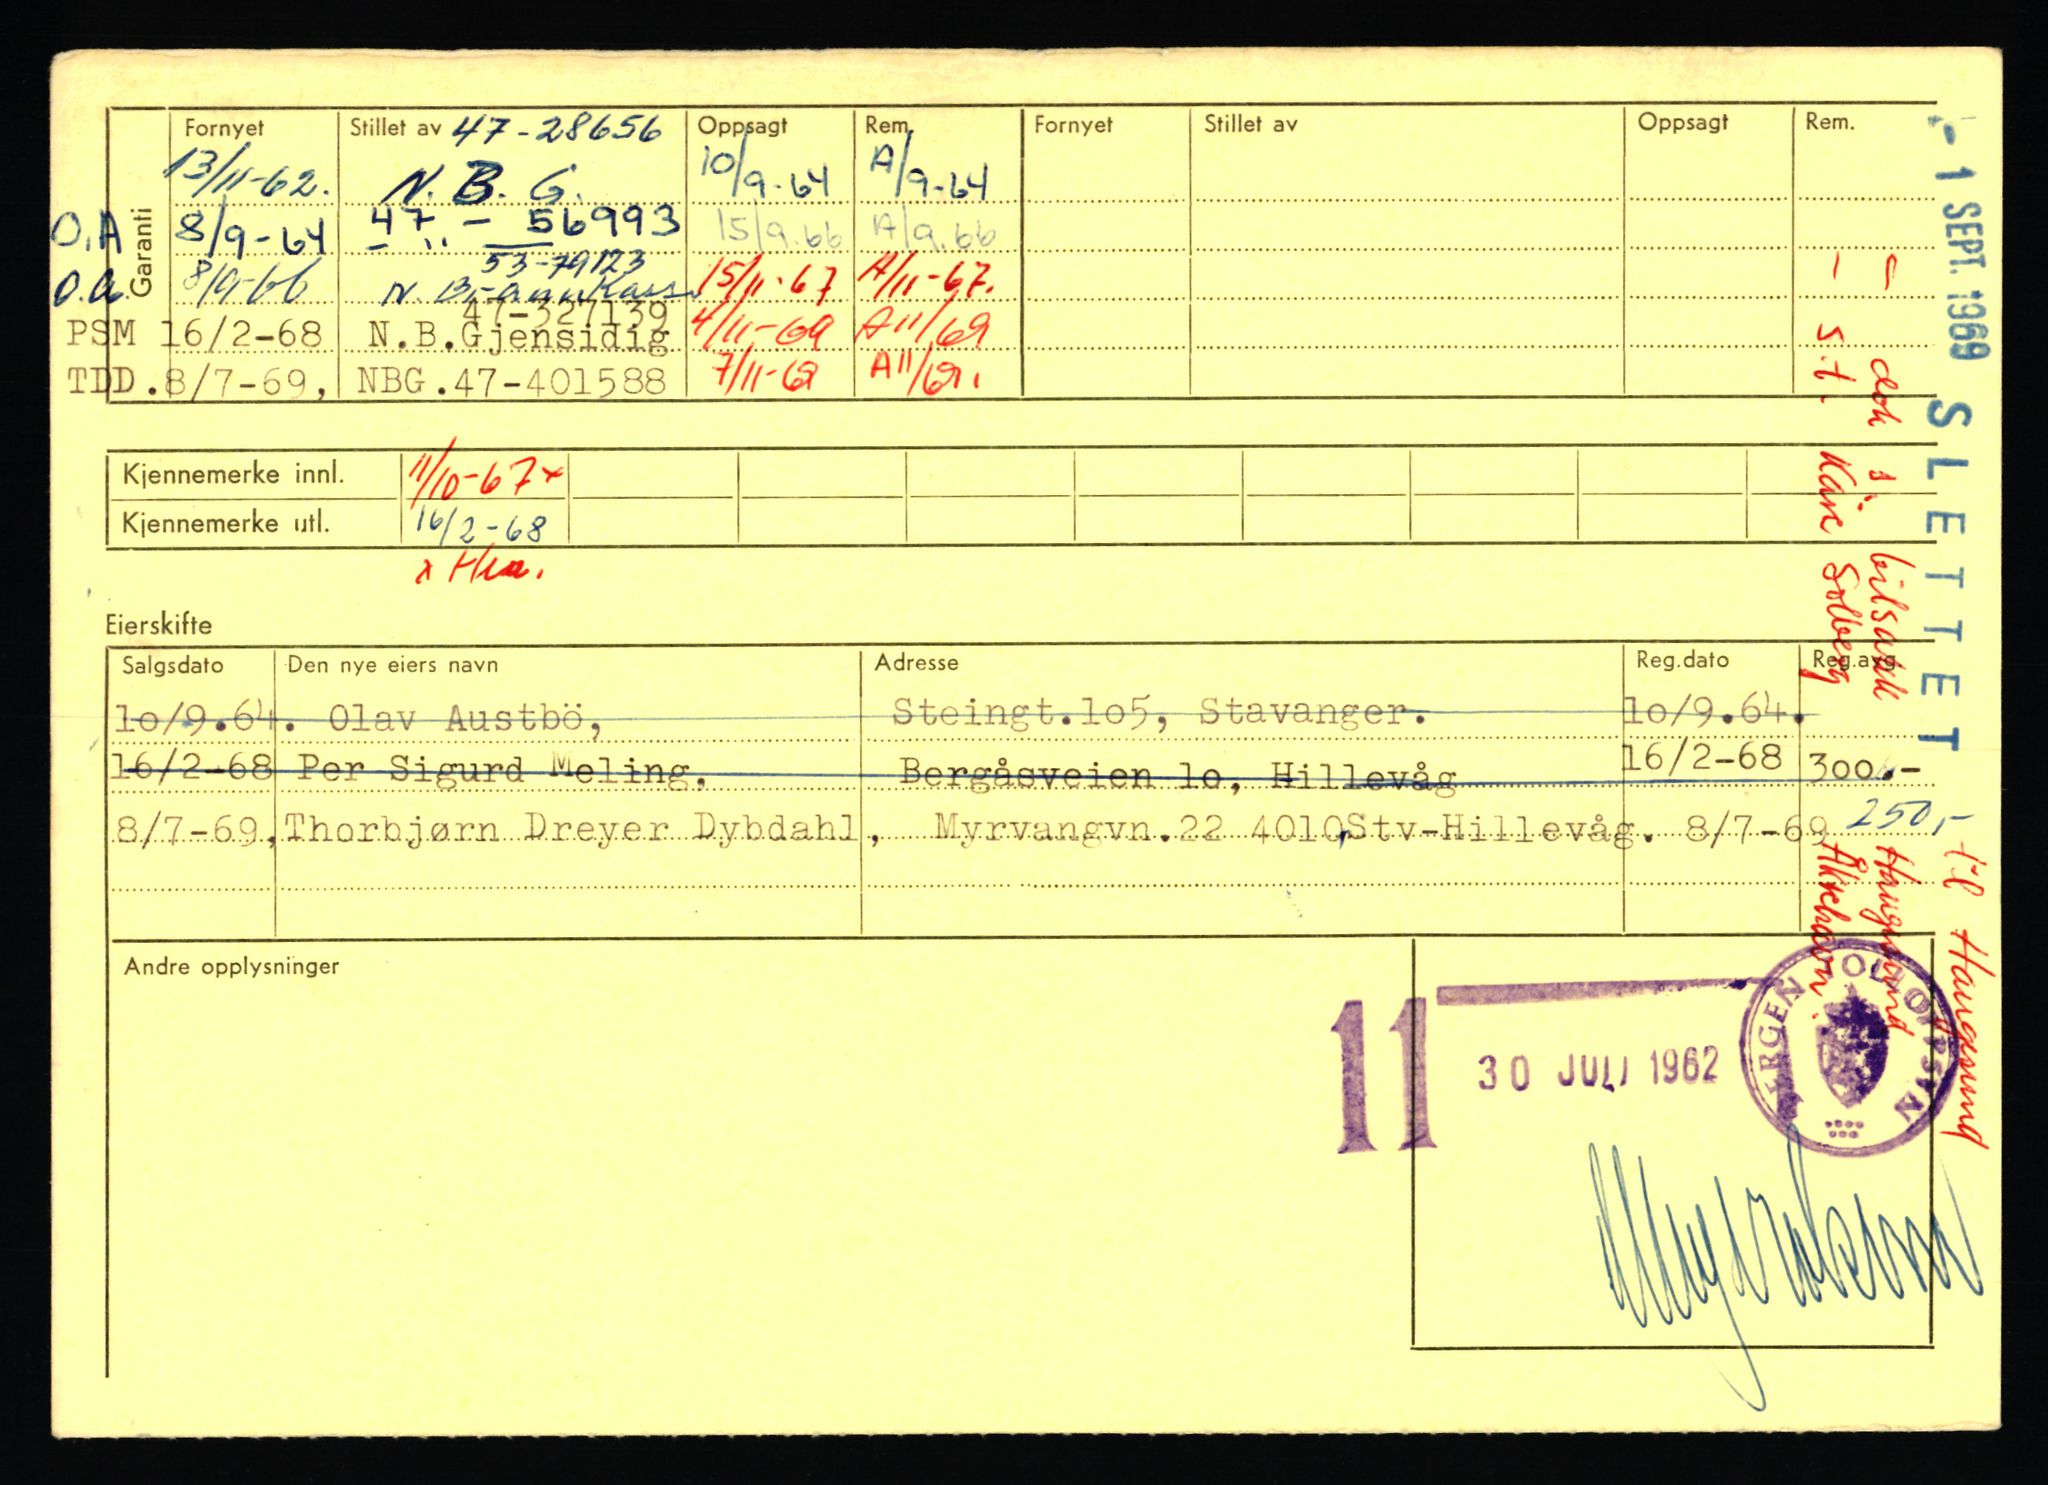 Fornyet Stillet av 47-28656 Oppsagt Rem. Fornyet Stillet av Oppsagt Rem.
Garanti
13/11-62. N. B. G. 10/9-64 A/9-64
O.A 8/9-64 47 - 56993 15/9.66 A/9.66
53-79123
O.A. 8/9-66 N. Brannkasse 15/11-67 A/11-67.
47-327139
PSM 16/2-68 N.B.Gjensidig 4/11-69 A11/69
TDD. 8/7-69, NBG.47-401588 7/11-69 A11/69.
Kjennemerke innl. 11/10-67x
Kjennemerke utl. 16/2-68
Eierskifte
Salgsdato Den nye eiers navn Adresse Reg.dato Reg.avg.
10/9.64. Olav Austbö, Steingt.105, Stavanger. 10/9.64.
16/2-68 Per Sigurd Meling, Bergåsveien 10, Hillevåg 16/2-68 300.-
8/7-69, Thorbjørn Dreyer Dybdahl, Myrvangvn.22 4010,Stv-Hillevåg. 8/7-69 250,-
Andre opplysninger
11
30 JULI 1962
BERGEN POLITIOPPSYN
- 1 SEPT. 1969 SLETTET til Haugesund
dok i bilsakk Haugesund
s.t. Kåre Solberg Åkrehavn.